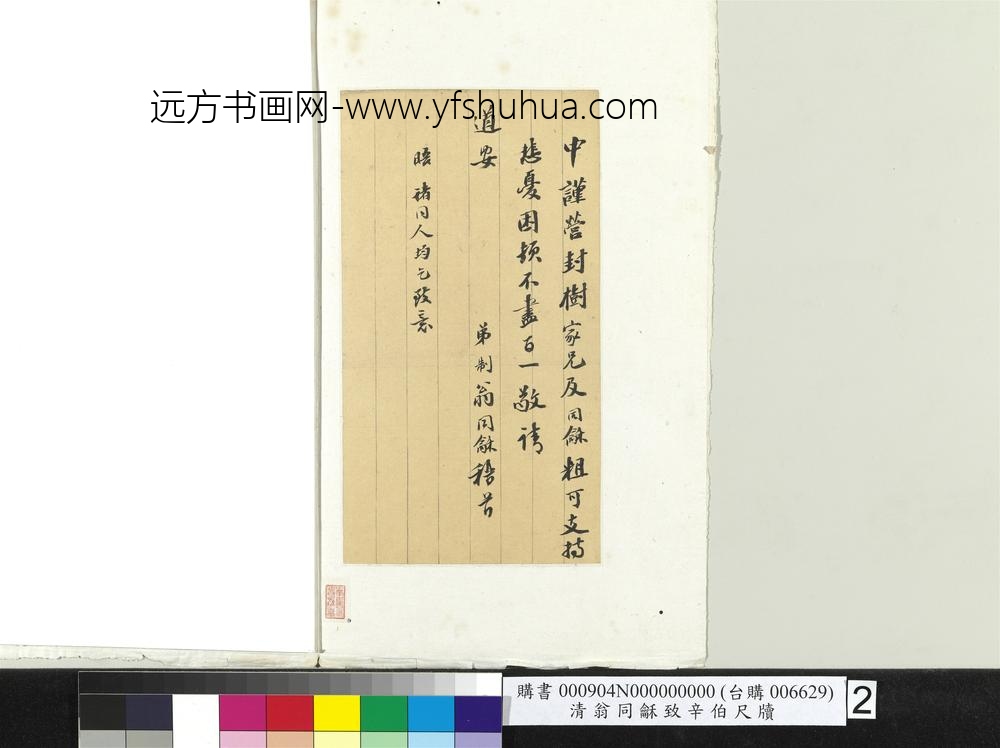 远方书画网-www.yfshuhua.com
中謹營封樹家兄及同龢粗可支持
悲憂困頓不盡百一敬請
道安
弟制翁同龢稽首
晤諸同人均乞致意
購書 000904N000000000 (台購 006629)
清翁同龢致辛伯尺牘
2